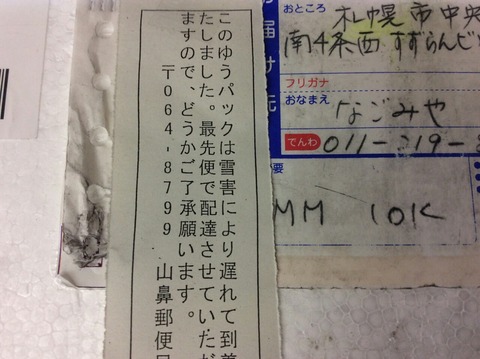 このゆうパックは雪害により遅れて到着
たしました。最先便で配達させていただ
ますので、どうかご了承願います。
〒064-8799 山鼻郵便局
届け先
おところ
札幌市中央
南4条西すずらんビ
フリガナ
おなまえ
なごみや
でんわ
011-219-
要
MM 10K